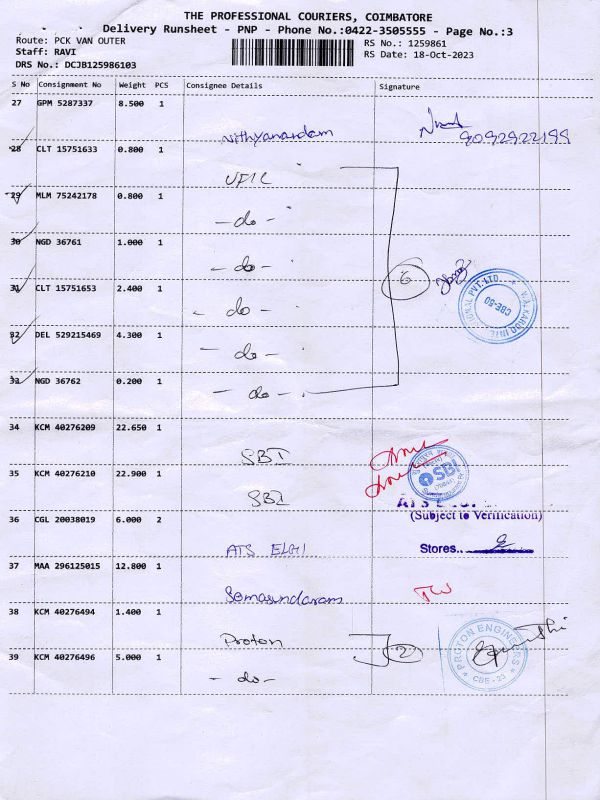 THE PROFESSIONAL COURIERS, COIMBATORE
Delivery Runsheet - PNP - Phone No.:0422-3505555 - Page No.:3
Route: PCK VAN OUTER
RS No.: 1259861
Staff: RAVI
RS Date: 18-Oct-2023
DRS No.: DCJB125986103
S No Consignment No Weight PCS Consignee Details Signature
27 GPM 5287337 8.500 1
Nithyanandam 9092922199
28 CLT 15751633 0.800 1
UFIC
29 MLM 75242178 0.800 1
- do -
30 NGD 36761 1.000 1
- do - 6
31 CLT 15751653 2.400 1
- do -
CBE-50
32 DEL 529215469 4.300 1
- do -
33 NGD 36762 0.200 1
- do -
34 KCM 40276209 22.650 1
SBI
35 KCM 40276210 22.900 1
SBI
SBI
36 CGL 20038019 6.000 2
(Subject to Verification)
ATS ELGI Stores..
37 MAA 296125015 12.800 1
Somasundaram
38 KCM 40276494 1.400 1
Proton 2
39 KCM 40276496 5.000 1
- do -
PROTON ENGINEERS
CBE - 23